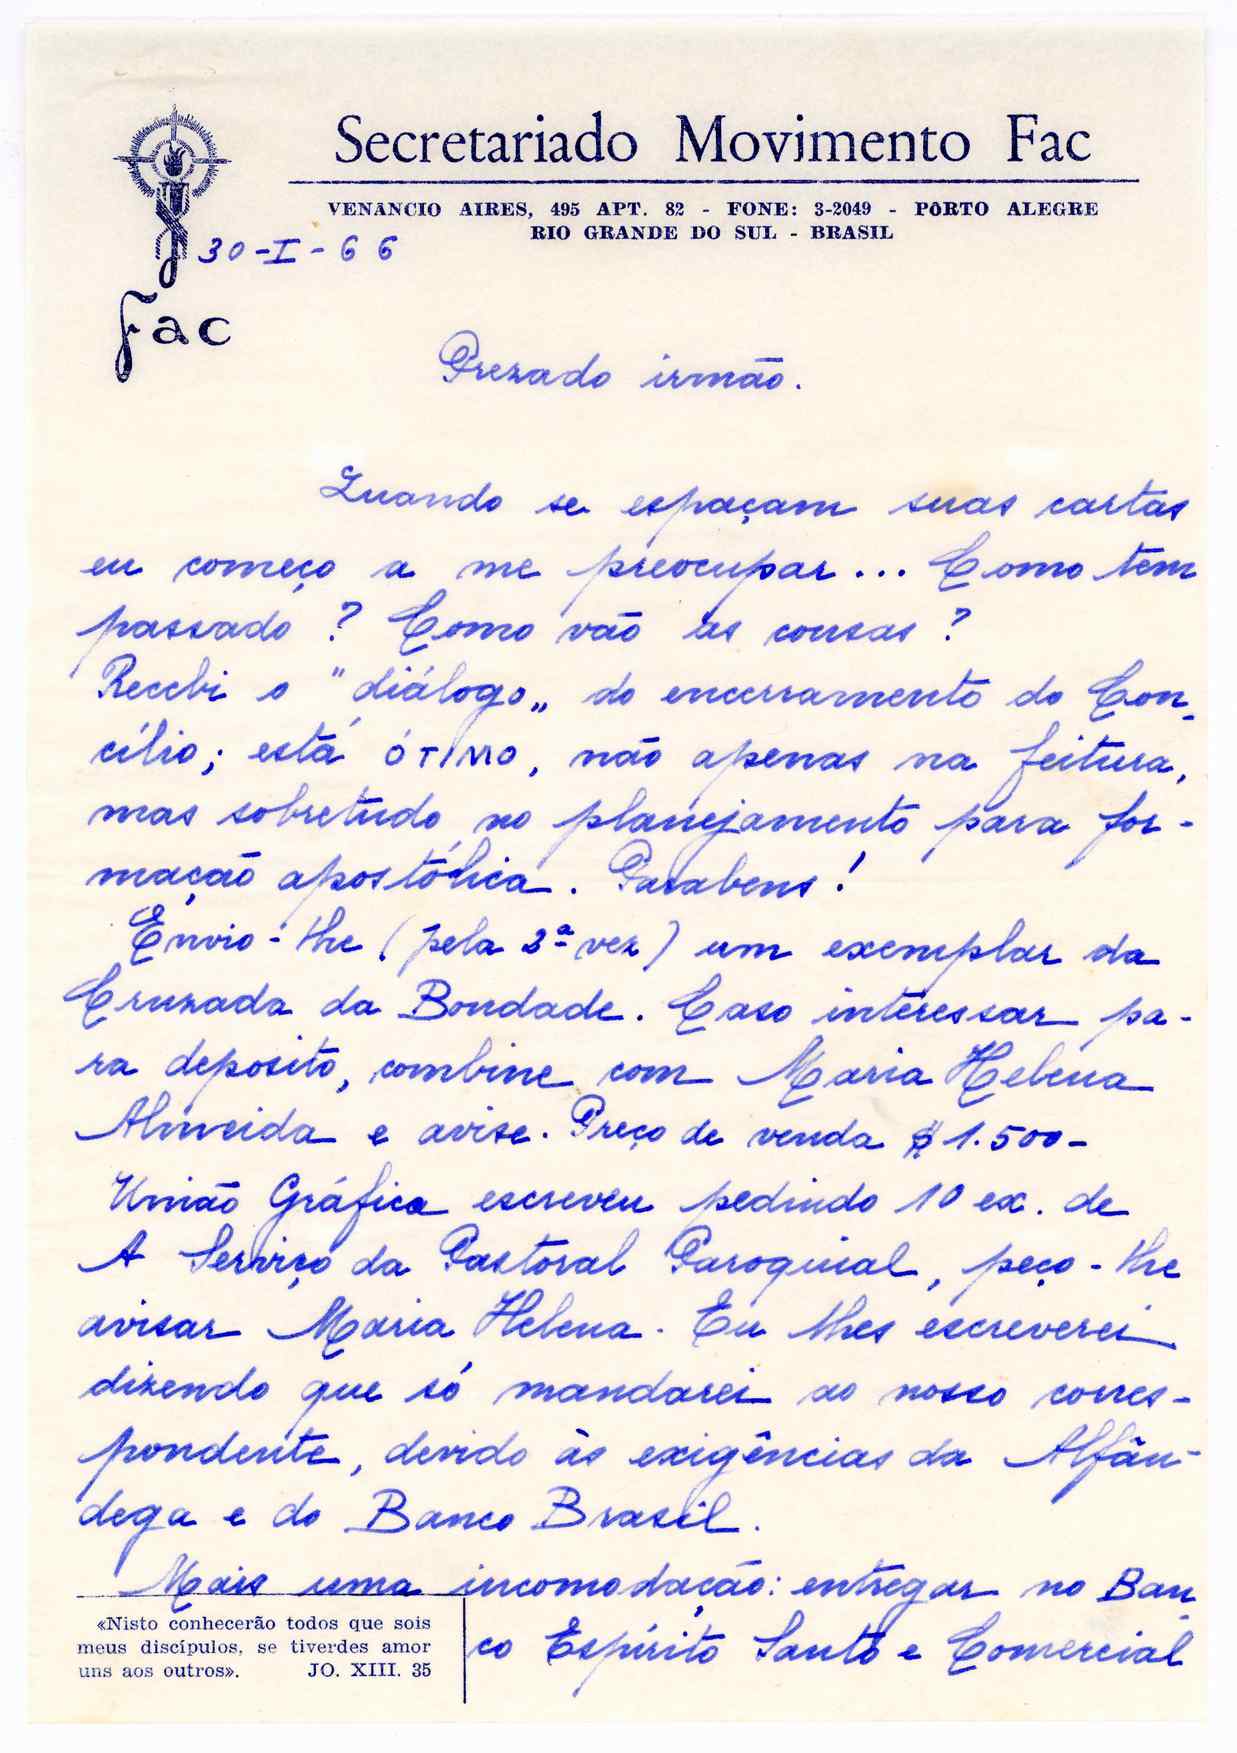 Secretariado Movimento Fac
VENÂNCIO AIRES, 495 APT. 82 - FONE: 3-2049 - PÔRTO ALEGRE
RIO GRANDE DO SUL - BRASIL
30-I-66
Fac
Prezado irmão.
Quando se espaçam suas cartas
eu começo a me preocupar... Como tem
passado? Como vão as cousas?
Recebi o "diálogo„ do encerramento do Con-
cílio; está ÓTIMO, não apenas na feitura,
mas sobretudo no planejamento para for-
mação apostólica. Parabens!
Envio-lhe (pela 2ª vez) um exemplar da
Cruzada da Bondade. Caso interessar pa-
ra deposito, combine com Maria Helena
Almeida e avise. Preço de venda $ 1.500-
União Gráfica escreveu pedindo 10 ex. de
A Serviço da Pastoral Paroquial, peço-lhe
avisar Maria Helena. Eu lhes escreverei
dizendo que só mandarei ao nosso corres-
pondente, devido às exigências da Alfân-
dega e do Banco Brasil.
Mais uma incomodação: entregar no Ban-
co Espírito Santo e Comercial
«Nisto conhecerão todos que sois
meus discípulos, se tiverdes amor
uns aos outros». JO. XIII. 35